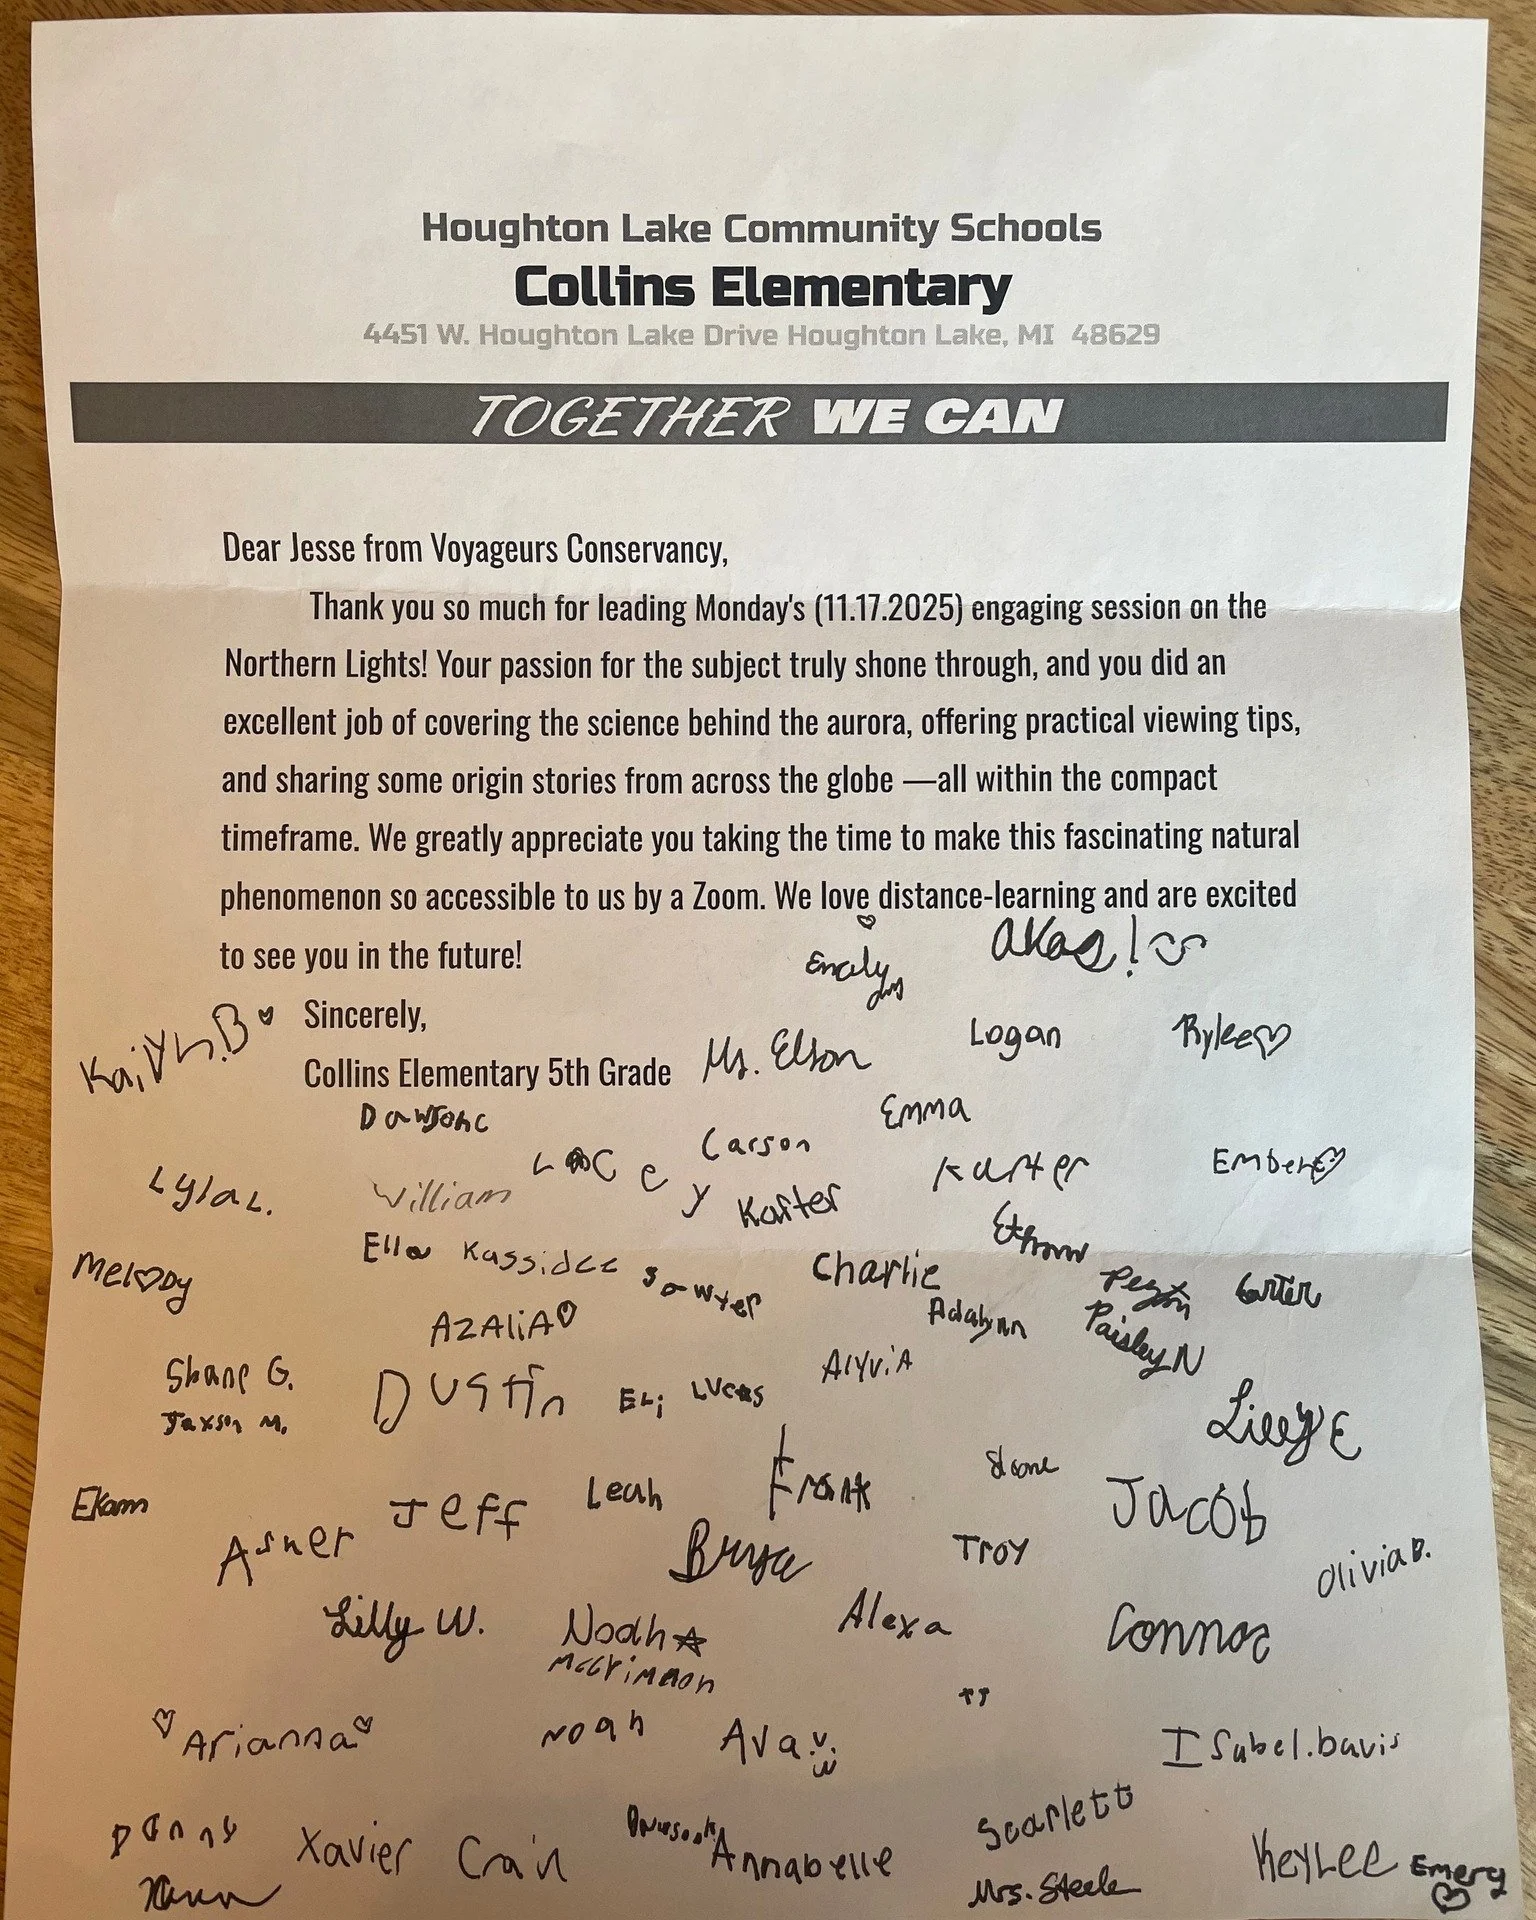 Houghton Lake Community Schools
Collins Elementary
4451 W. Houghton Lake Drive Houghton Lake, MI 48629
TOGETHER WE CAN
Dear Jesse from Voyageurs Conservancy,
Thank you so much for leading Monday's (11.17.2025) engaging session on the
Northern Lights! Your passion for the subject truly shone through, and you did an
excellent job of covering the science behind the aurora, offering practical viewing tips,
and sharing some origin stories from across the globe —all within the compact
timeframe. We greatly appreciate you taking the time to make this fascinating natural
phenomenon so accessible to us by a Zoom. We love distance-learning and are excited
to see you in the future!
Sincerely,
Collins Elementary 5th Grade
Logan
Rylee
Emma
Lacey
Carson
Karter
Ember
Lyla L.
William
Karter
Ella
Kassidee
Sawyer
Charlie
Ethan
Peyton
Carter
Melody
AZALiA
Adalynn
Paisley N
Shane G.
Jaxson M.
Dustin
Eli
Lucas
Alyvia
Lilly E
Ekam
Asher
Jeff
Leah
Frank
Jacob
Troy
Olivia B.
Lilly W.
Noah
McCrimmon
Alexa
Connor
Arianna
Noah
Ava
Danny
Xavier
Scarlett
Annabelle
Mrs. Steele
KeyLee
Emery